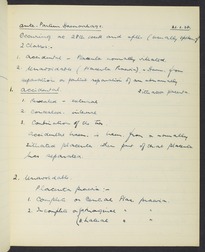 Ante-Partum Haemorrhage.
Occurring at 28th week and after (usually
2 Classes:-
1. Accidental - Placenta normally situated.
2. Unavoidable (Placenta Praevia) - from
separation or partial separation of an abnormally
situated placenta
1. Accidental.
1. Revealed - external
2. Concealed - internal
3. Combination of the two
Accidental haem. is haem. from a normally
situated placenta when part of
has separated.
2. Unavoidable.
Placenta praevia:-
1. Complete or Central Plac. praevia.
2. Incomplete
(b) lateral " "